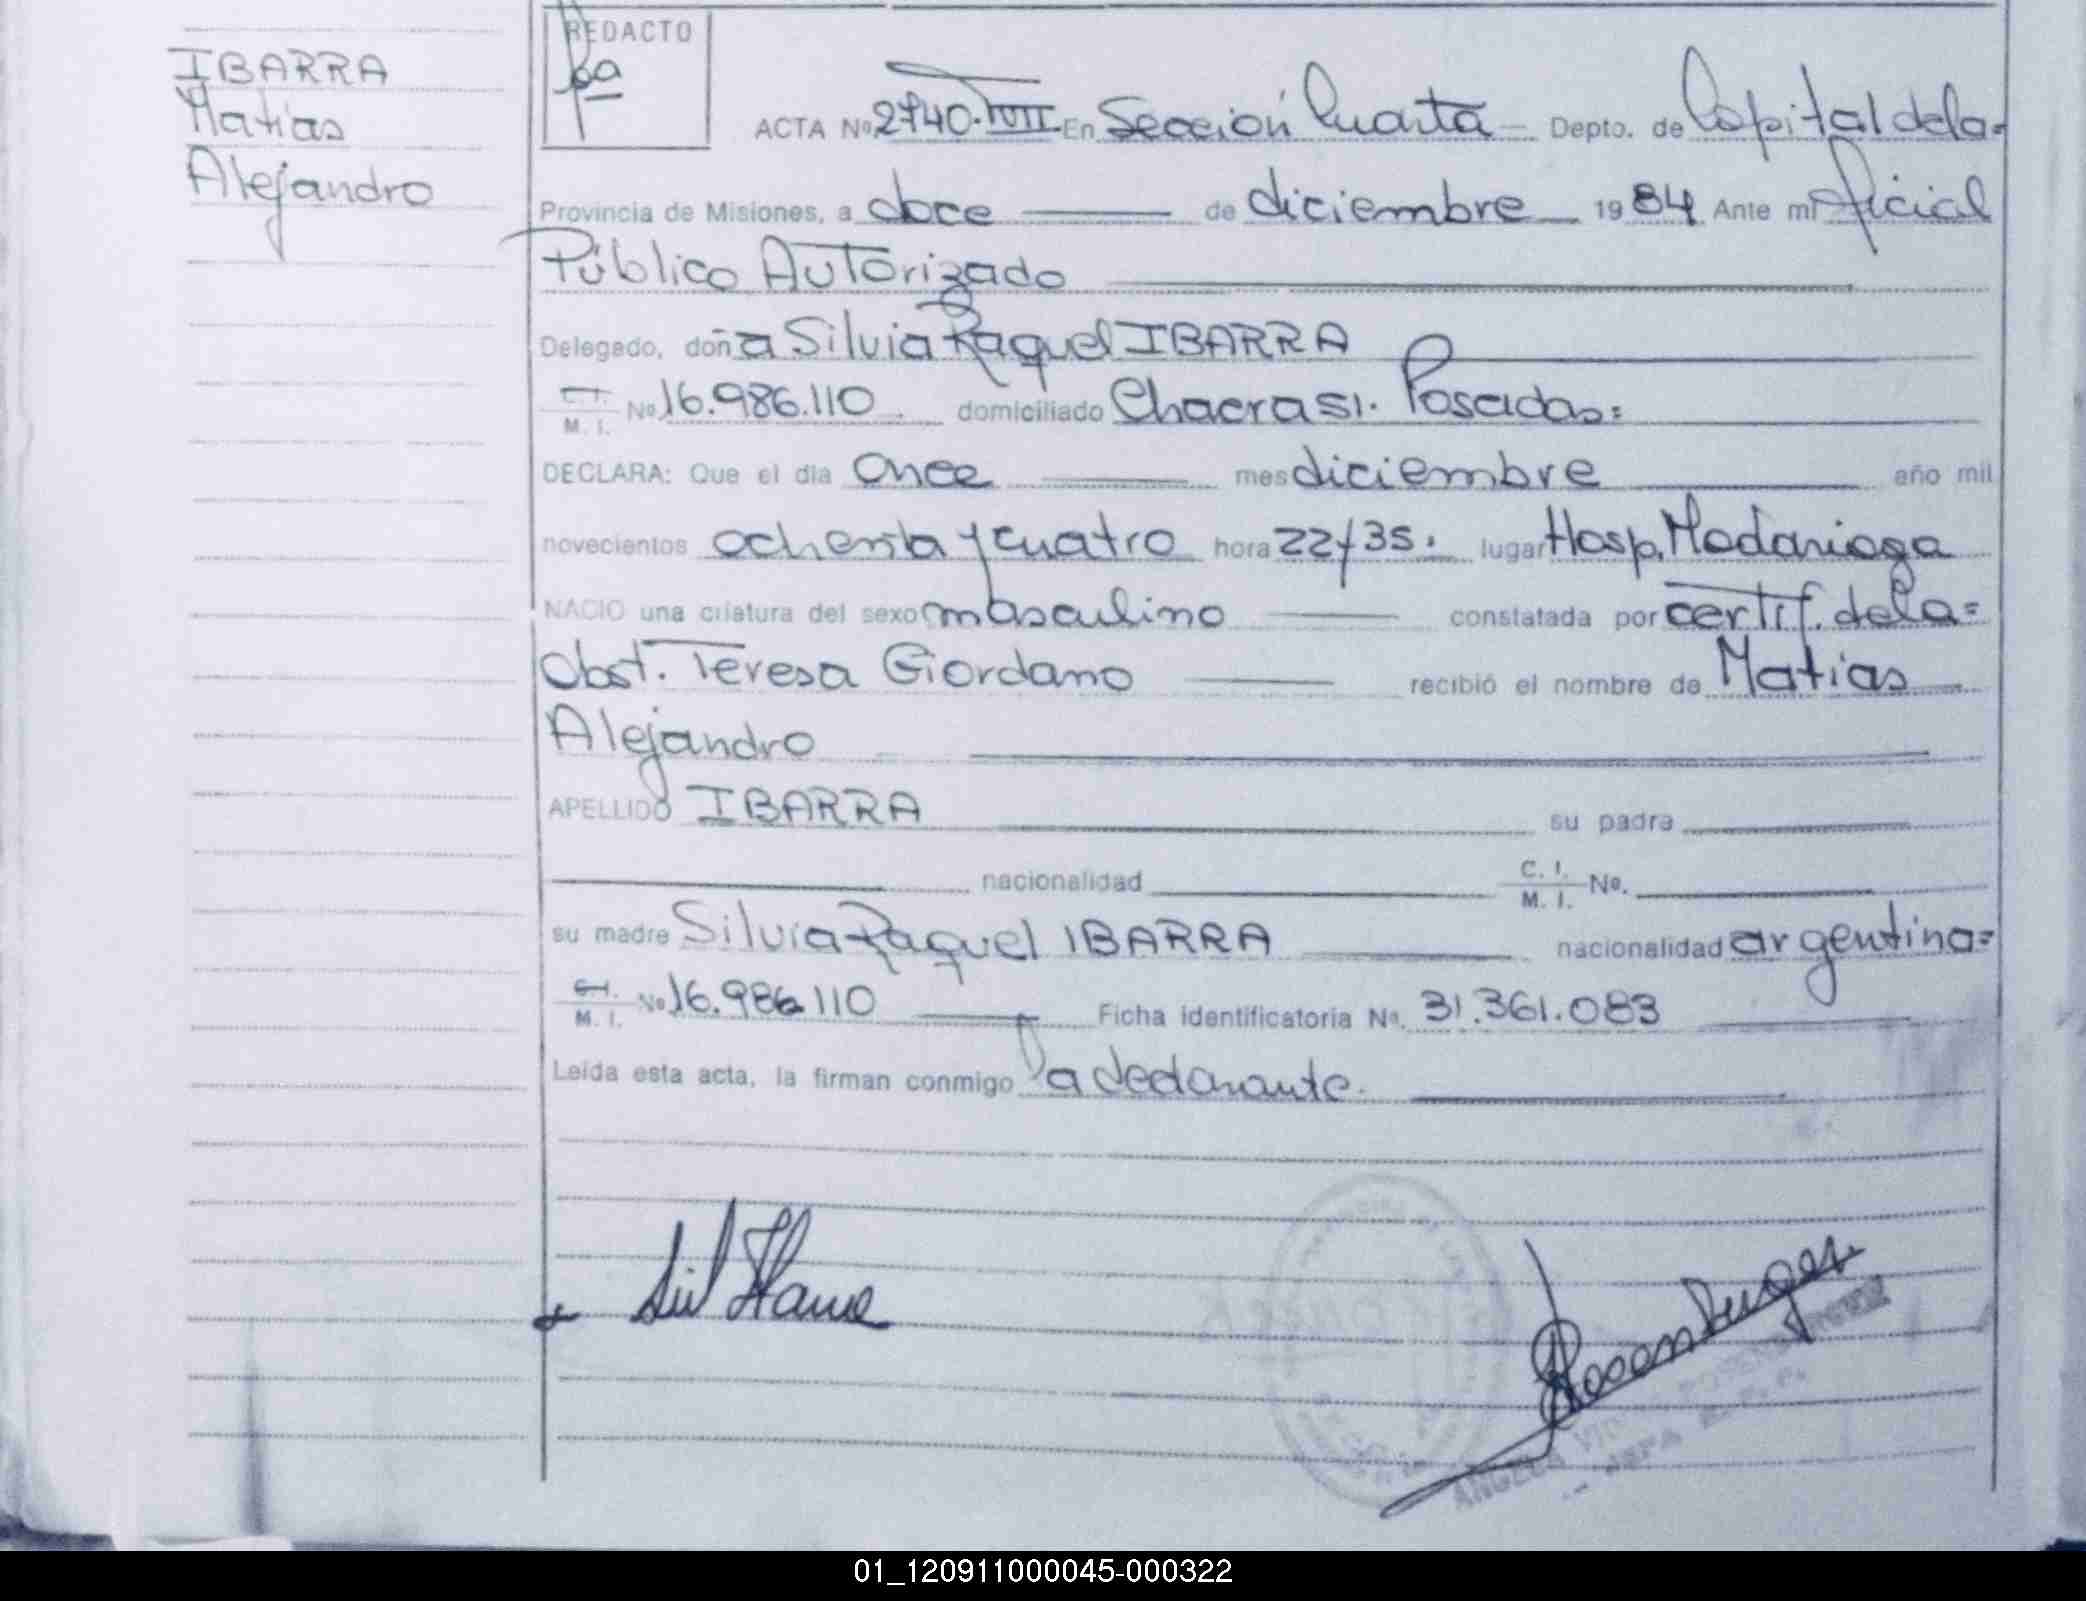 IBARRA
Matías
Alejandro
REDACTO
ACTA Nº 2740. En Sección Cuarta Depto. de Capital de la=
Provincia de Misiones, a doce de diciembre 1984 Ante mi Oficial
Público Autorizado
Delegado, doña Silvia Raquel IBARRA
M. I. Nº 16.986.110 domiciliado Chacra 51. Posadas=
DECLARA: Que el día once mes diciembre año mil
novecientos ochenta y cuatro hora 22/35. lugar Hosp. Madariaga
NACIO una criatura del sexo masculino constatada por certif. de la=
Obst. Teresa Giordano recibió el nombre de Matías
Alejandro
APELLIDO IBARRA su padre
nacionalidad C. I. M. I. Nº.
su madre Silvia Raquel IBARRA nacionalidad argentina=
C. I. M. I. Nº 16.986.110 Ficha identificatoria Nº. 31.361.083
Leída esta acta, la firman conmigo la declarante.
01_120911000045-000322